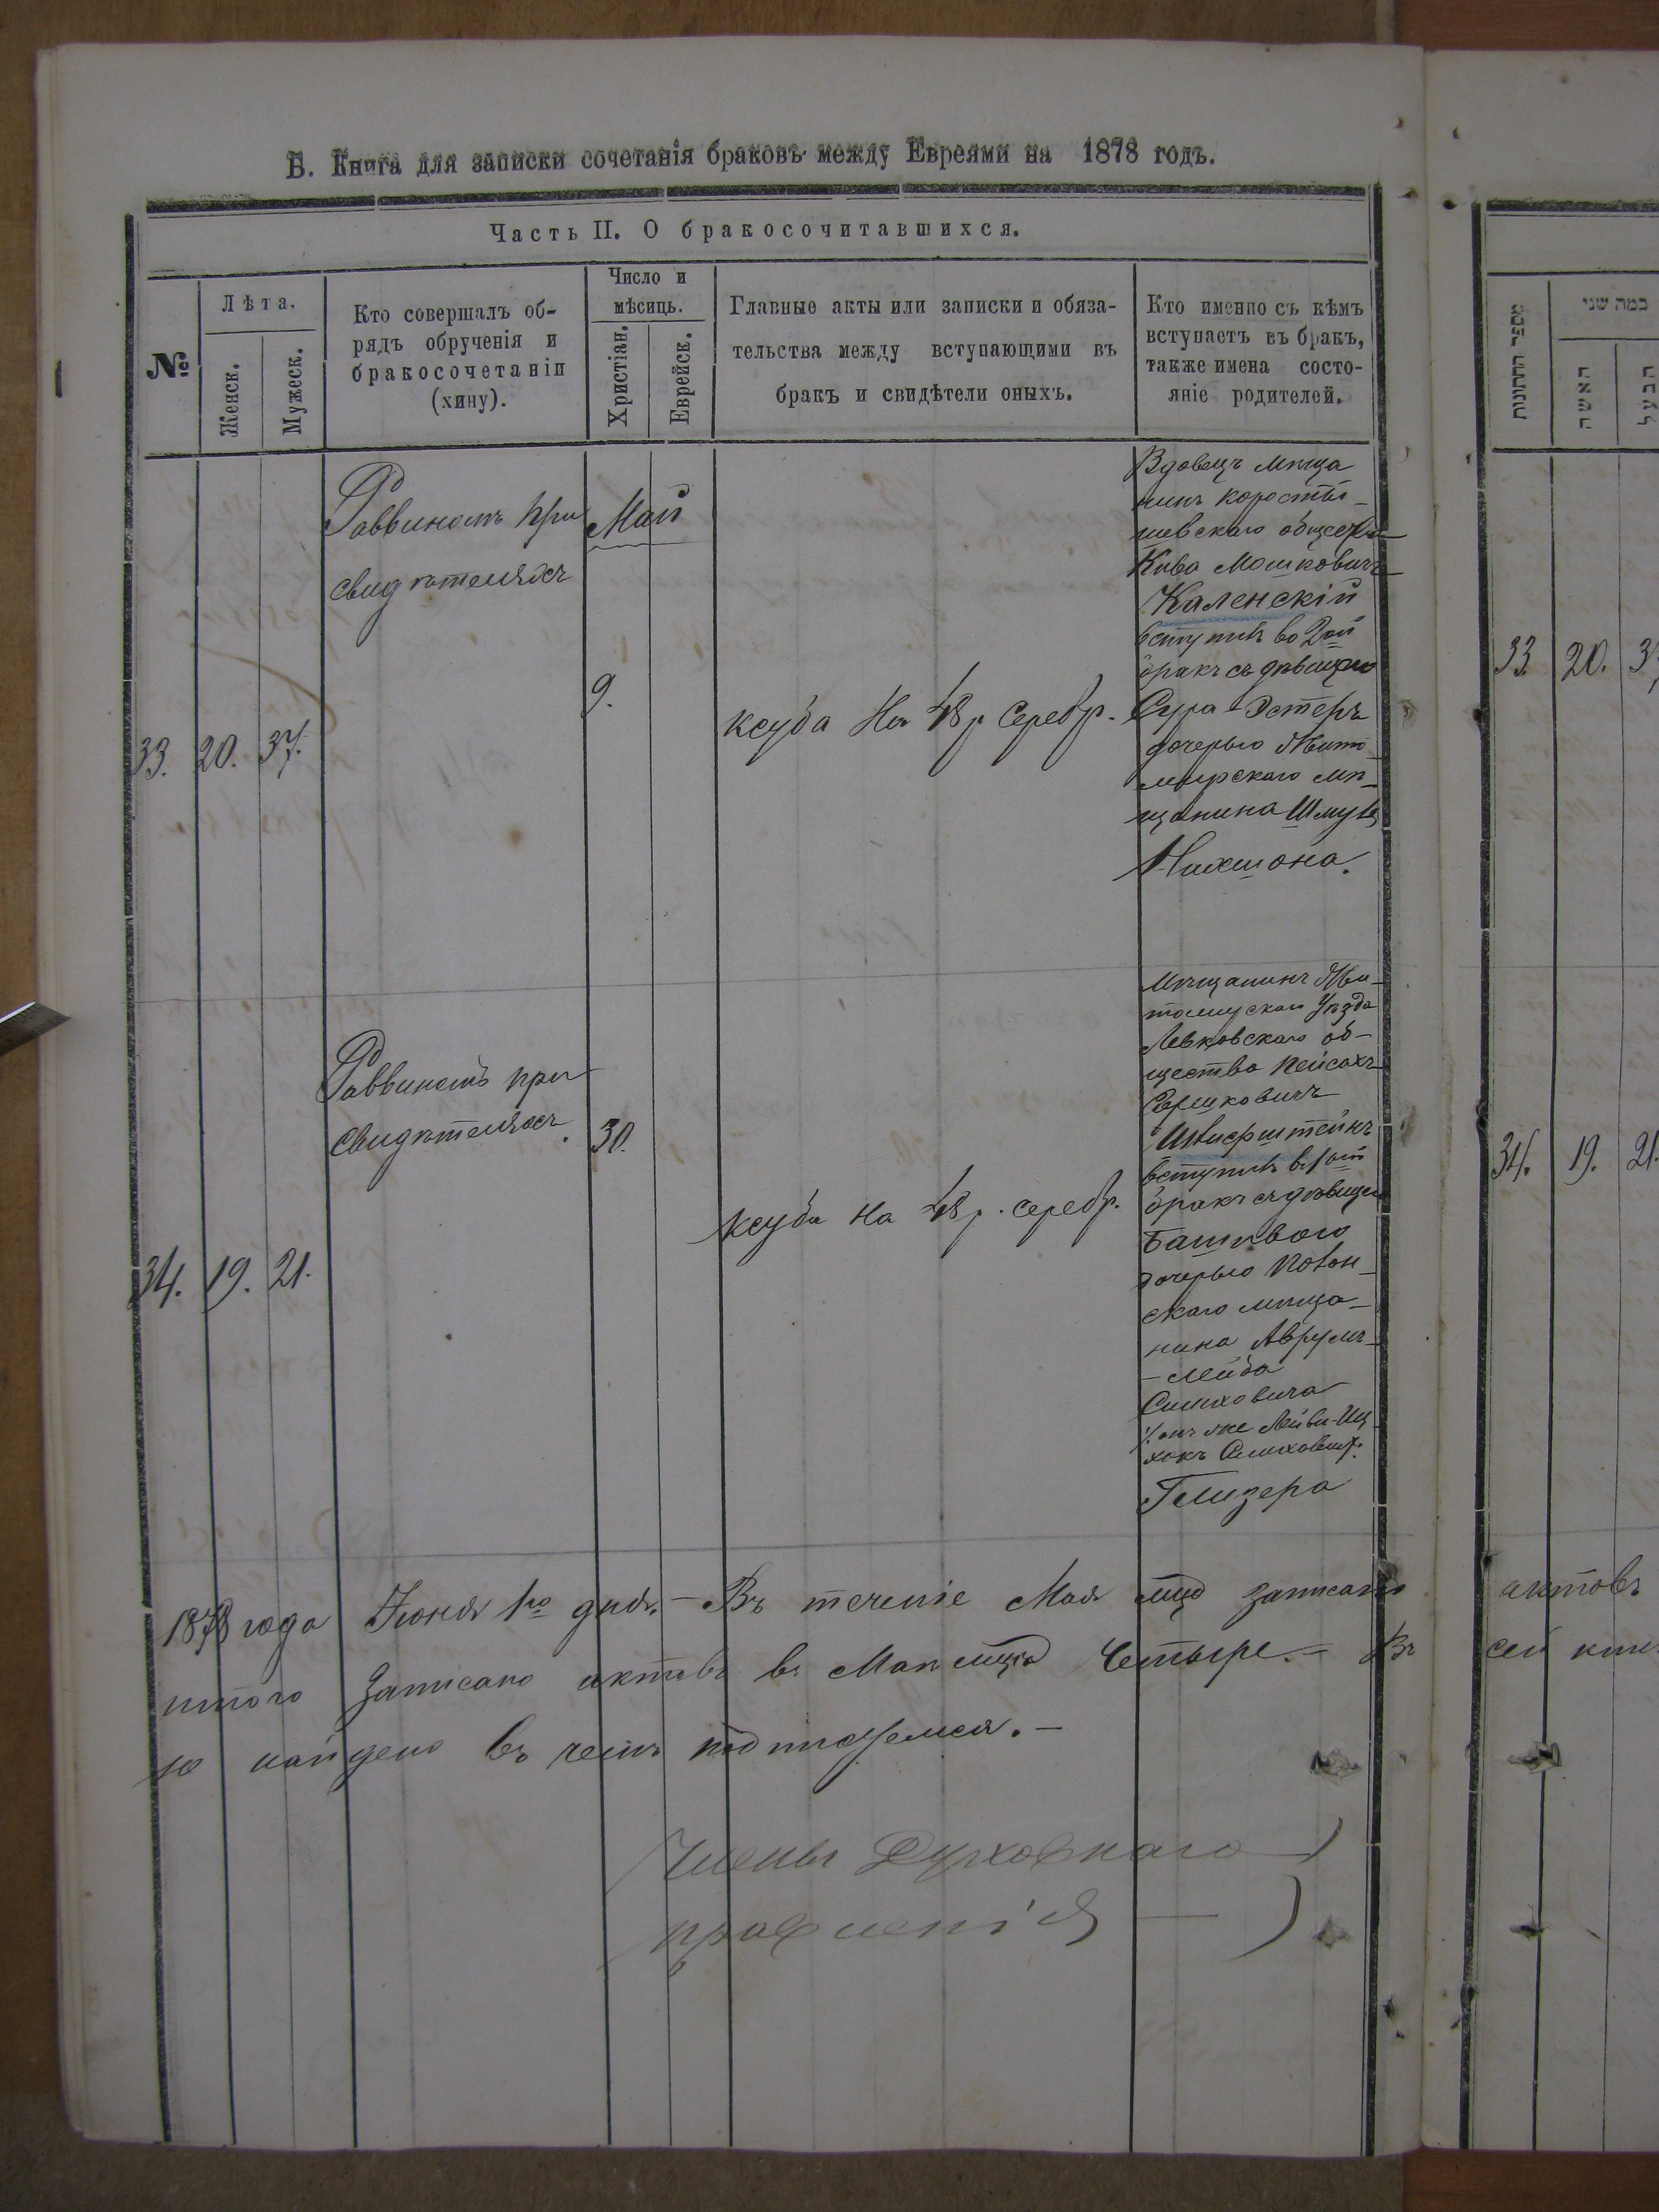 Б. Книга для записки сочетанія браковъ между Евреями на 1878 годъ.
Часть II. О бракосочитавшихся.
№
Лѣта.
Женск.
Мужеск.
Кто совершалъ об-
рядъ обрученія и
бракосочетаніи
(хину).
Число и
мѣсяцъ.
Христіан.
Еврейск.
Главные акты или записки и обяза-
тельства между вступающими въ
бракъ и свидѣтели оныхъ.
Кто именно съ кѣмъ
вступаетъ въ бракъ,
также имена состо-
яніе родителей.
33.
20.
37.
Раввиномъ при
свидѣтеляхъ
Май
9.
ксуба на 48 р серебр.
Вдовецъ мѣща
нинъ Коросты-
шевскаго общества
Кива Мошковичъ
Каленскій
вступилъ во 2ой
бракъ съ дѣвицею
Сура-Эстеръ
дочерью Жито
мирскаго мѣ-
щанина Шмуля
Нахмона.
34.
19.
21.
Раввиномъ при
свидѣтеляхъ.
30.
ксуба на 48 р. серебр.
Мѣщанинъ Жи-
томирскаго Уѣзда
Левковскаго об-
щества Пейсахъ
Гершковичъ
вступилъ въ 1ый
бракъ съ дѣвицею
дочерью
скаго мѣща-
нина Аврумъ-
-Лейба
Симховича
онъ же Лейба-Иц
хокъ Симховичъ.
Глизера
1878 года Іюня 1го дня. - Въ теченіе Мая мцд записано актовъ
итого записано актовъ въ Маѣ мцѣ Четыре. - Въ сей кни
найдено въ чемъ подписуемся. -
Члены Духовнаго
правленія
מספר החתונות
כמה שני
האשה
הבעל
33
20.
34.
19.
21.